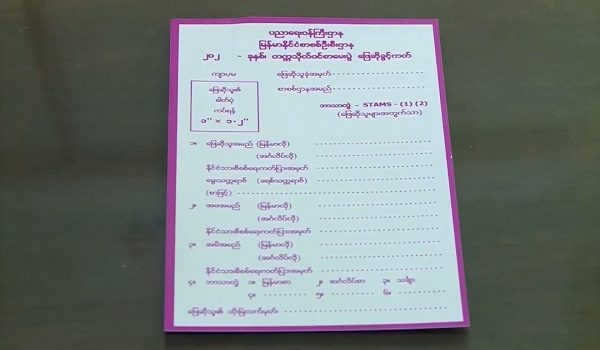 ပညာရေးဝန်ကြီးဌာန
မြန်မာနိုင်ငံစာစစ်ဦးစီးဌာန
၂၀၂ - ခုနှစ်၊ တက္ကသိုလ်ဝင်စာမေးပွဲ ဖြေဆိုခွင့်ကတ်
ကျား/မ
ဖြေဆိုသူ၏
ဓါတ်ပုံ
ကပ်ရန်
၁" × ၁·၂"
ဖြေဆိုသူခုံအမှတ်
စာစစ်ဌာနအမည်
ဘာသာတွဲ - STAMS - (1) (2)
(ဖြေဆိုသူများအတွက်သာ)
၁။ ဖြေဆိုသူအမည် (မြန်မာလို)
(အင်္ဂလိပ်လို)
နိုင်ငံသားစိစစ်ရေးကတ်ပြားအမှတ်
မွေးသက္ကရာဇ် (ခရစ်သက္ကရာဇ်)
(စာဖြင့်)
၂။ အဖအမည် (မြန်မာလို)
(အင်္ဂလိပ်လို)
နိုင်ငံသားစိစစ်ရေးကတ်ပြားအမှတ်
၃။ အမိအမည် (မြန်မာလို)
(အင်္ဂလိပ်လို)
နိုင်ငံသားစိစစ်ရေးကတ်ပြားအမှတ်
၄။ ဘာသာတွဲ ၁။ မြန်မာစာ ၂။ အင်္ဂလိပ်စာ ၃။ သင်္ချာ
၄။ ၅။ ၆။
ဖြေဆိုသူ၏ ထိုးမြဲလက်မှတ်